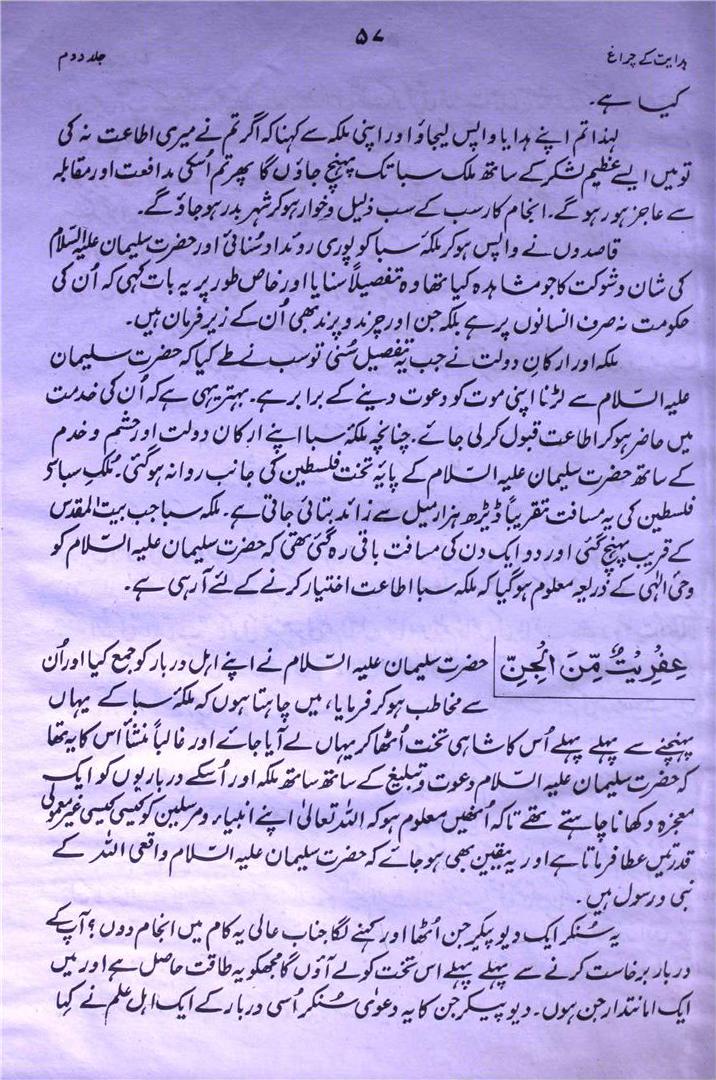 ۵۷
ہدایت کے چراغ
جلد دوم
کیا ہے۔
لہٰذا تم اپنے ہدایا واپس لیجاؤ اور اپنی ملکہ سے کہنا کہ اگر تم نے میری اطاعت نہ کی
تو میں ایسے عظیم لشکر کے ساتھ ملک سبا تک پہنچ جاؤں گا پھر تم اُسکی مدافعت اور مقابلہ
سے عاجز ہو رہو گے۔ انجام کار سب کے سب ذلیل و خوار ہو کر شہر بدر ہو جاؤ گے۔
قاصدوں نے واپس ہو کر ملکۂ سبا کو پوری روئداد سُنائی اور حضرت سلیمان علیہ السّلام
کی شان و شوکت کا جو مشاہدہ کیا تھا وہ تفصیلاً سنایا اور خاص طور پر یہ بات کہی کہ اُن کی
حکومت نہ صرف انسانوں پر ہے بلکہ جن اور چرند و پرند بھی اُن کے زیر فرمان ہیں۔
ملکہ اور ارکانِ دولت نے جب یہ تفصیل سُنی تو سب نے طے کیا کہ حضرت سلیمان
علیہ السّلام سے لڑنا اپنی موت کو دعوت دینے کے برابر ہے۔ بہتر یہی ہے کہ اُن کی خدمت
میں حاضر ہو کر اطاعت قبول کر لی جائے۔ چنانچہ ملکۂ سبا اپنے ارکان دولت اور حشم و خدم
کے ساتھ حضرت سلیمان علیہ السّلام کے پایۂ تخت فلسطین کی جانب روانہ ہو گئی۔ مُلکِ سبا تا
فلسطین کی یہ مسافت تقریباً ڈیڑھ ہزار میل سے زائد بتائی جاتی ہے۔ ملکہ سبا جب بیت المقدس
کے قریب پہنچ گئی اور دو ایک دن کی مسافت باقی رہ گئی تھی کہ حضرت سلیمان علیہ السّلام کو
وحی الٰہی کے ذریعہ معلوم ہو گیا کہ ملکہ سبا اطاعت اختیار کرنے کے لئے آ رہی ہے۔
عِفْرِیْتٌ مِّنَ الْجِنِّ
حضرت سلیمان علیہ السّلام نے اپنے اہل دربار کو جمع کیا اور اُن
سے مخاطب ہو کر فرمایا، میں چاہتا ہوں کہ ملکۂ سبا کے یہاں
پہنچنے سے پہلے پہلے اُس کا شاہی تخت اُٹھا کر یہاں لے آیا جائے اور غالباً منشأ اس کا یہ تھا
کہ حضرت سلیمان علیہ السّلام دعوت و تبلیغ کے ساتھ ساتھ ملکہ اور اُسکے درباریوں کو ایک
معجزہ دکھانا چاہتے تھے تاکہ اُنھیں معلوم ہو کہ اللہ تعالیٰ اپنے انبیاء و مرسلین کو کیسی کیسی غیر معمولی
قدرتیں عطا فرماتا ہے اور یہ یقین بھی ہو جائے کہ حضرت سلیمان علیہ السّلام واقعی اللہ کے
نبی و رسول ہیں۔
یہ سُنکر ایک دیو پیکر جن اُٹھا اور کہنے لگا جناب عالی یہ کام میں انجام دوں؟ آپ کے
دربار برخاست کرنے سے پہلے پہلے اس تخت کو لے آؤں گا مجھکو یہ طاقت حاصل ہے اور میں
ایک امانتدار جن ہوں۔ دیو پیکر جن کا یہ دعوٰی سُنکر اُسی دربار کے ایک اہلِ علم نے کہا